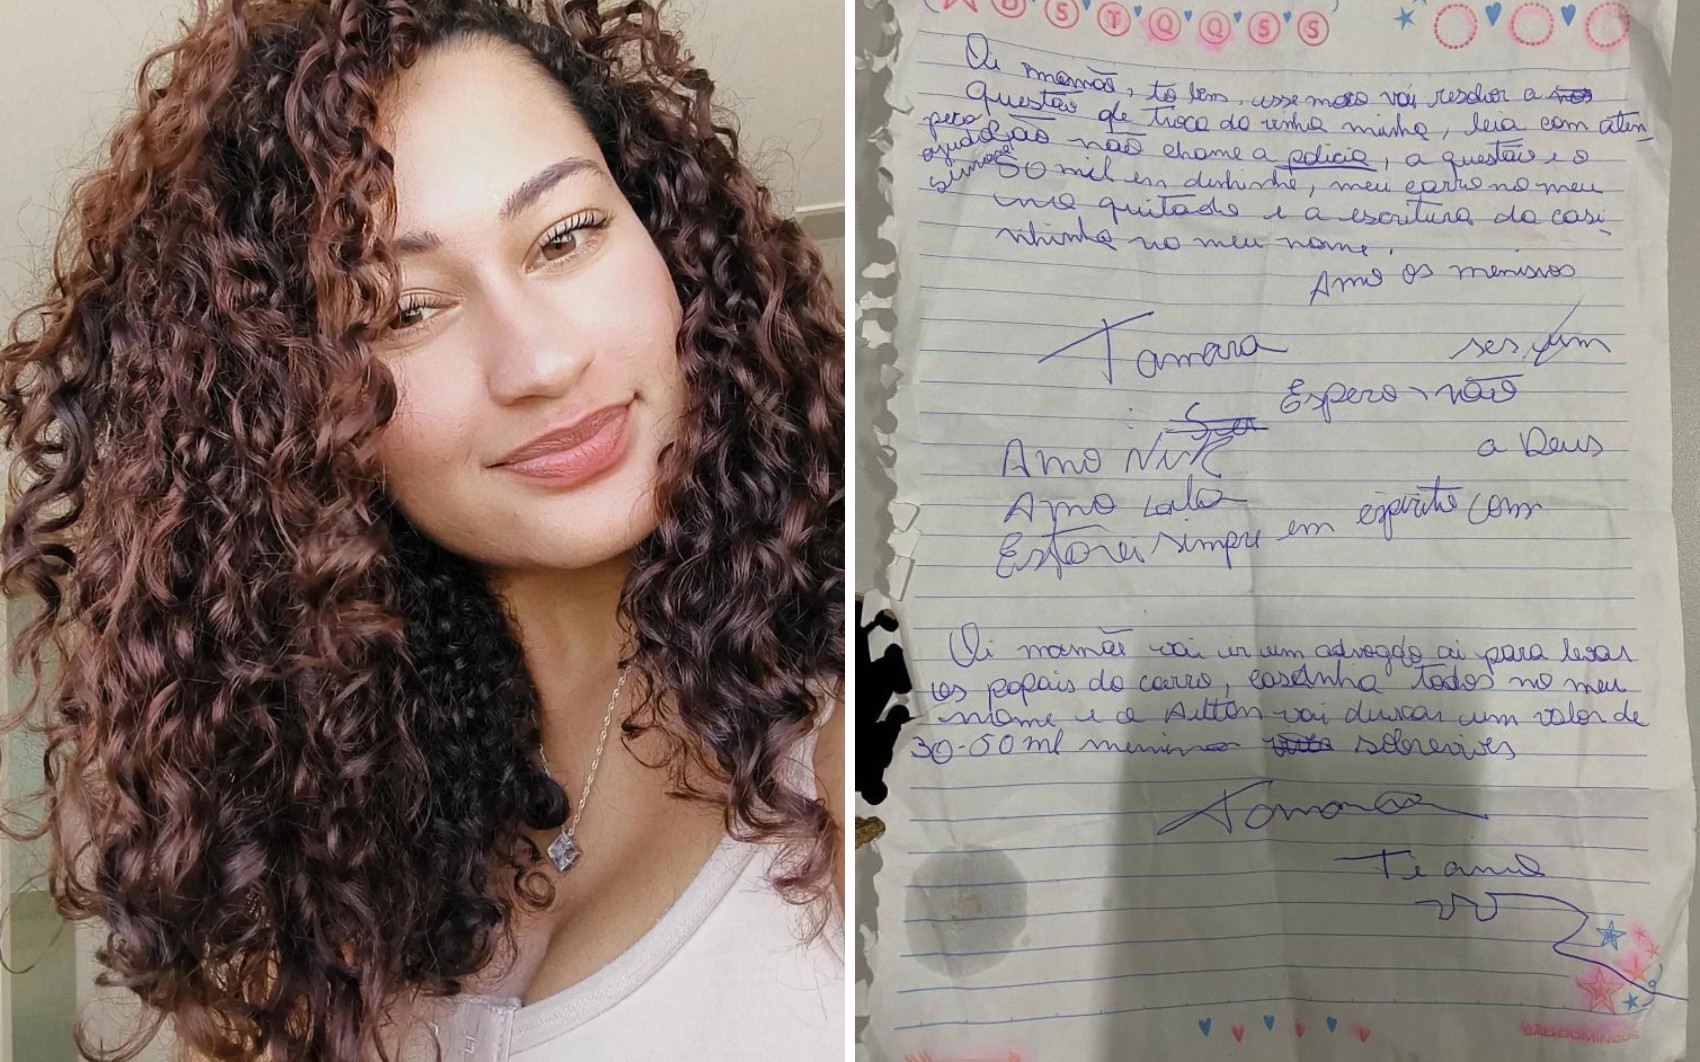 D S T Q Q S S
Oi mamãe, to bem, esse moço vai resolver a
Questão de troca da vinha minha, leia com aten
peço
ção não chame a policia, a questão e o
ajuda
50 mil em dinhinho, meu carro no meu
no quitado e a escritura da casi-
nhinha no meu nome.
Amo os meninos
Tamara
Espero não
Amo
a Deus
Amo
Estarei sempre em espirito com
Oi mamãe vai ir um advogado ai para levar
os papais do carro, casinha todos no meu
nome e o Ailton vai buscar um valor de
30-50 mil
Te amo